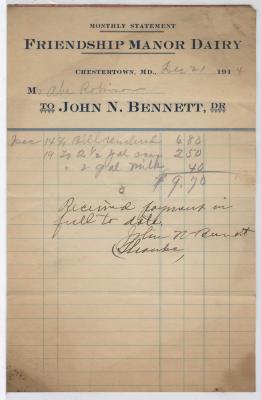 MONTHLY STATEMENT
FRIENDSHIP MANOR DAIRY
CHESTERTOWN, MD., Dec 21 1914
M Abe Robinson
TO JOHN N. BENNETT, DR
Dec 14 To Bill rendered 6 80
19 To 2 1/2 gal 2 50
" 2 gal Milk 40
$ 9.70
Received payment in
full to date.
John N Bennett
Thanks,